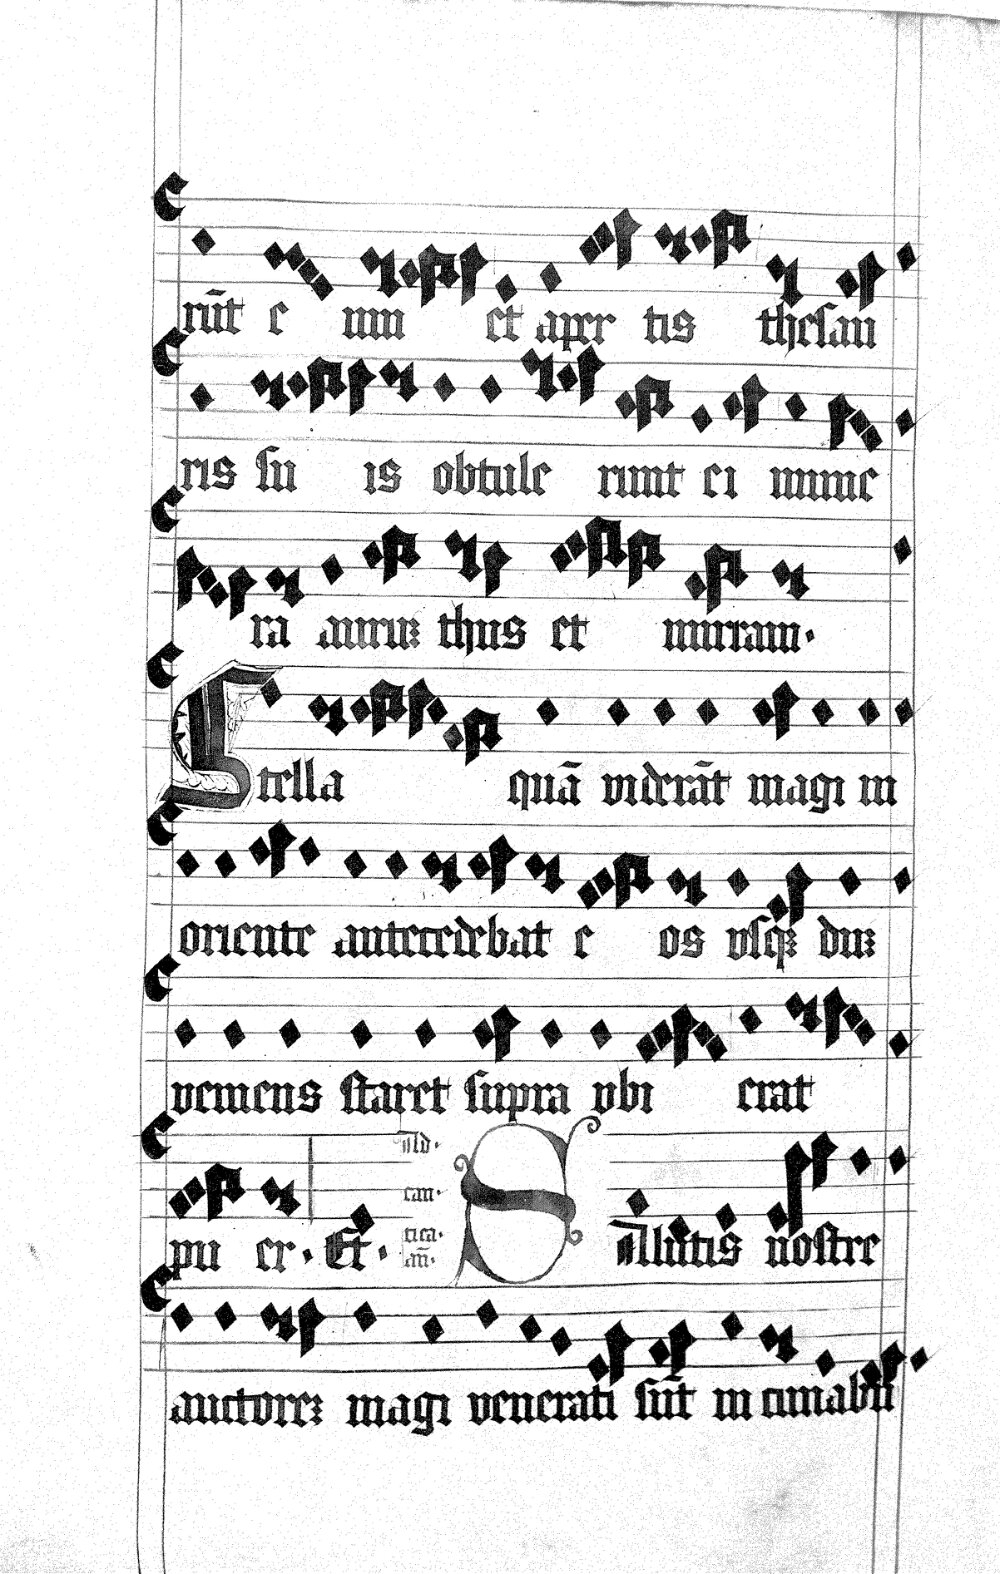 rūt e um et aper tis thesau
ris su is obtule runt ei mune
ra auruꝫ thus et mirram·
Stella quā viderāt magi in
oriente antecedebat e os vsqꝫ duꝫ
veniens staret supra vbi erat
pu er· Et· ad can tica· an̄· Salutis nostre
auctoreꝫ magi venerati sūt in cunabu